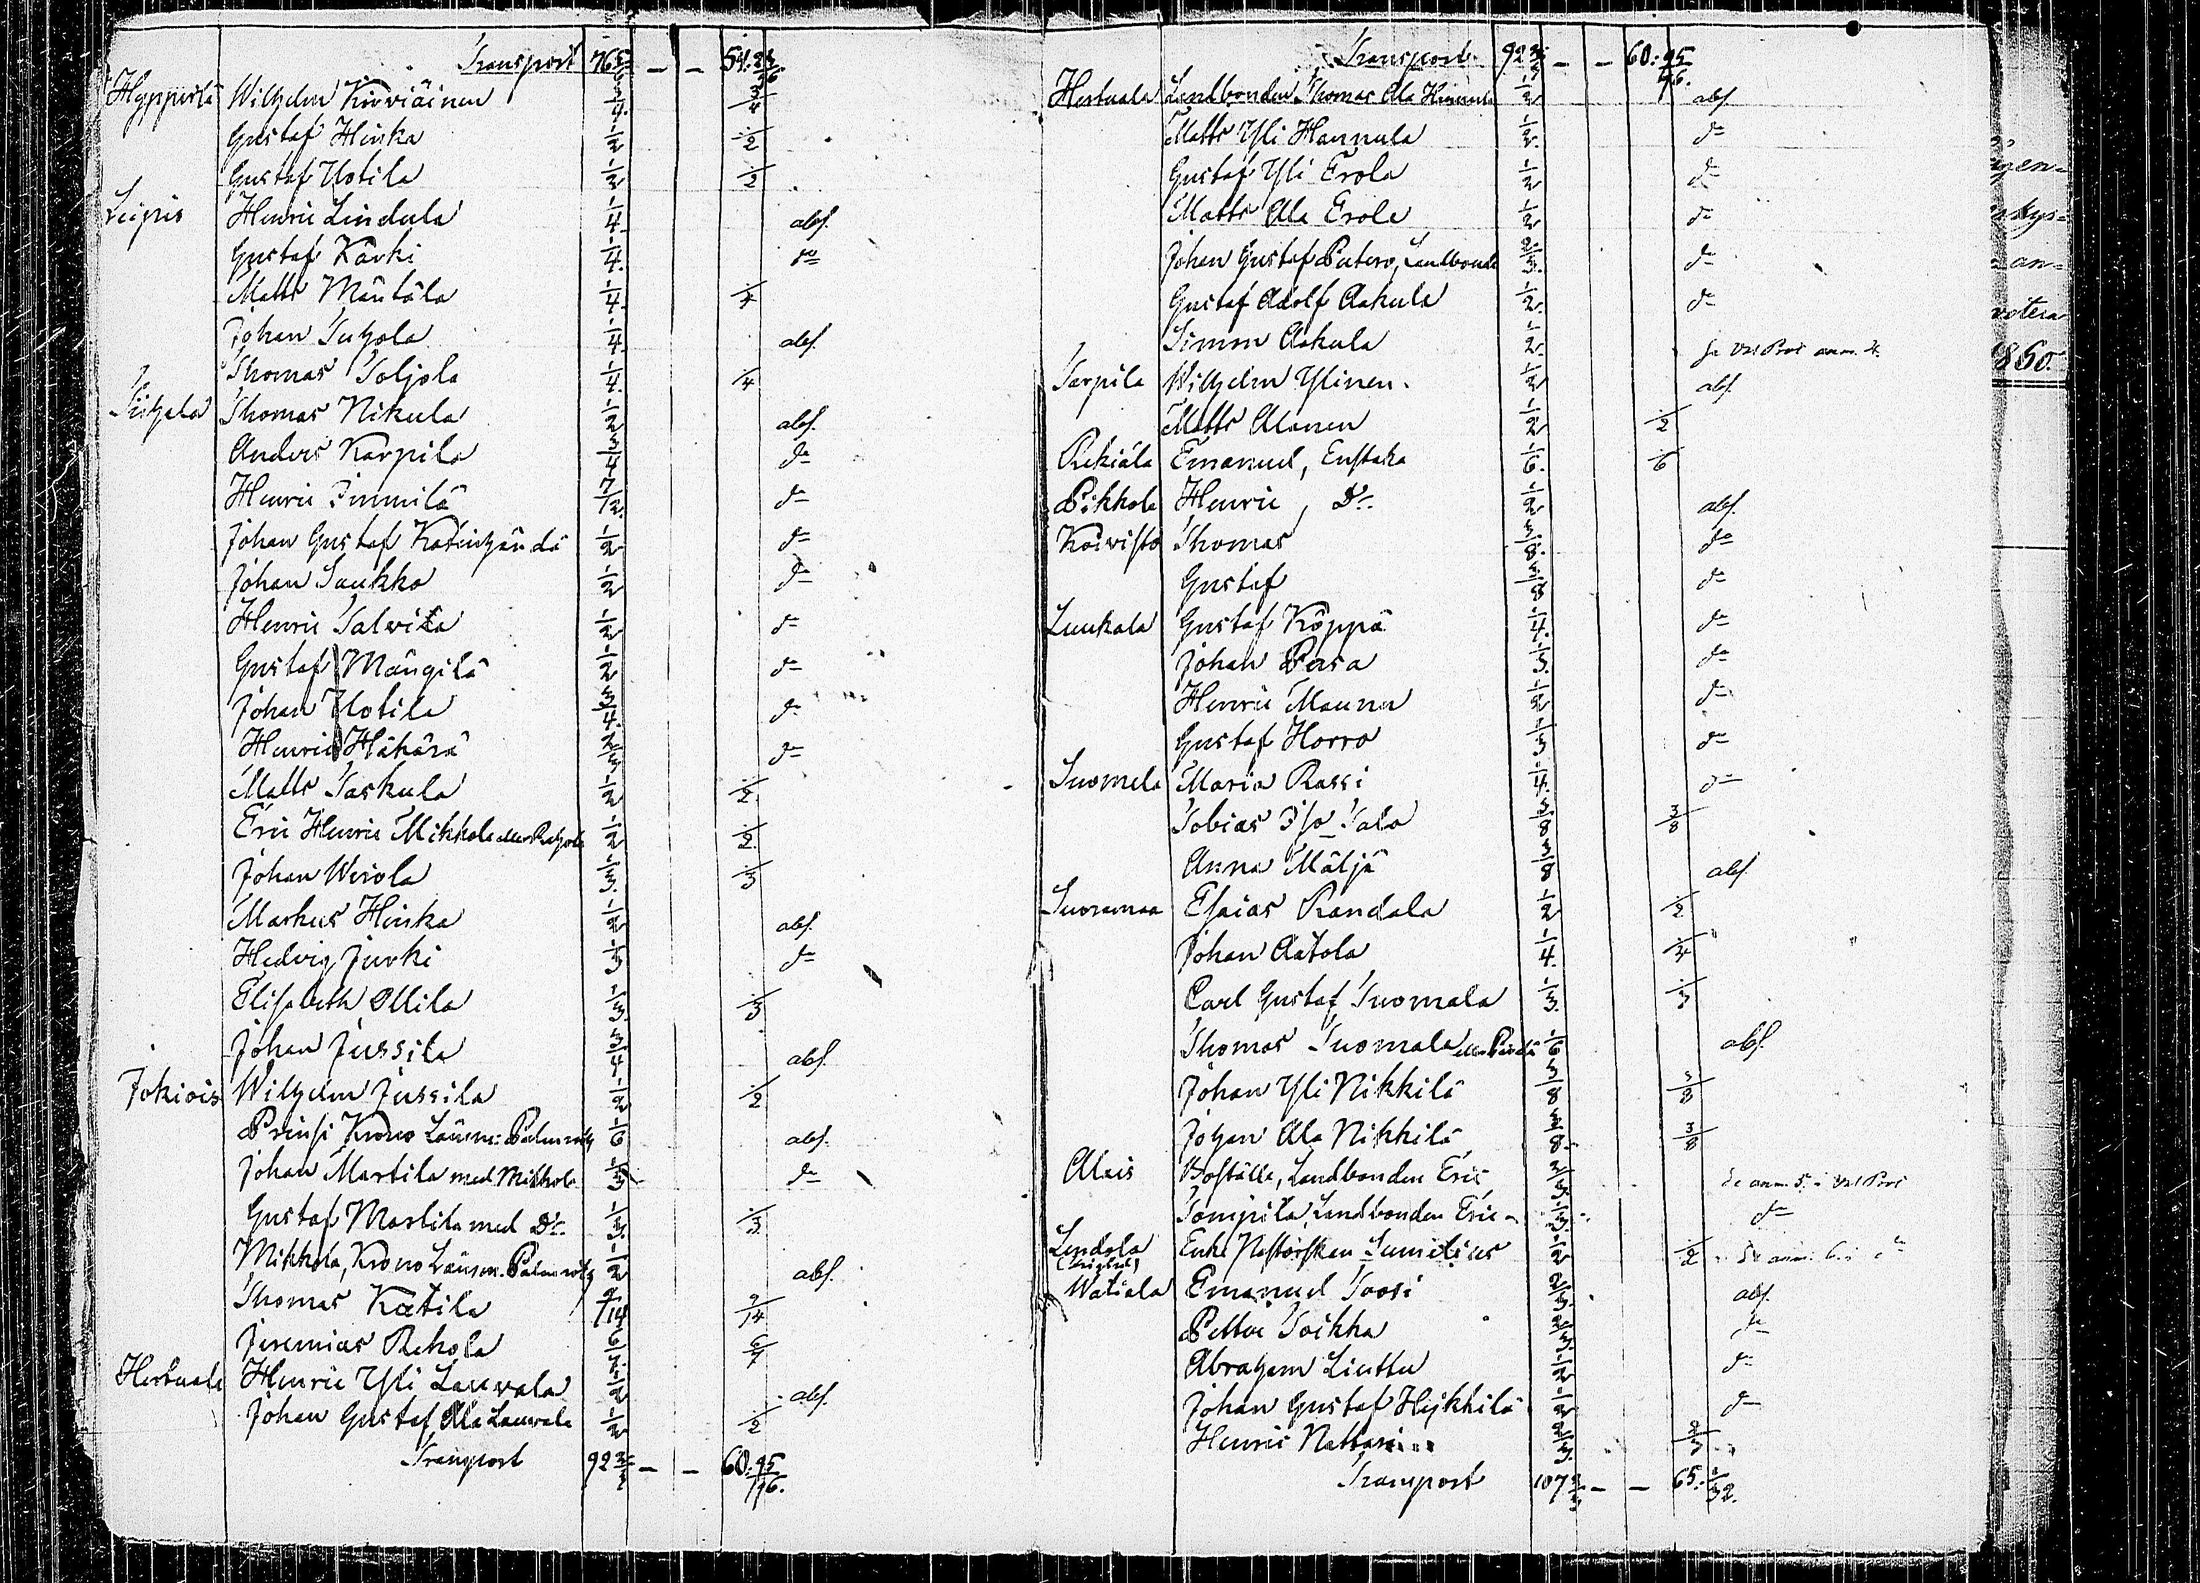 Transport 76 5/6 — — 54: 
Hypperlä Wilhelm Kirviäinen 3/4 3/4
Gustaf Hinka 1/2 1/2
Gustaf Uotila 1/2 1/2
Leipis Henric Lindula 1/4 abs.
Gustaf Kärki 1/4 do
Matts Mäntälä 1/4 1/4
Johan Suhola 1/4 abs.
Thomas Toljola 1/4 1/4
Thomas Nikula 1/2 abs.
Anders Karpila 3/4 do
Henric Finnilä 7/12 do
Johan Gustaf 1/2 do
Johan Saukko 1/2 do
Henric Salwila 1/2 do
Gustaf Mängilä 1/2 do
Johan Uotila 3/4 do
Henric Häkärä 2/3 do
Matts Taskula 1/2 1/2
Eric Henric Mikkola eller 1/2 1/2
Johan Wirola 1/3 1/3
Markus Hinka 1/2 abs.
Hedvig Jurki 1/3 do
Elisabeth Ollila 1/3 1/3
Johan Jussila 3/4 abs.
Jokiois Wilhelm Jussila 1/2 1/2
Prinsi Krono Länsm: Palmroth 1/6 abs.
Johan Martila med Mikkola 1/3 do
Gustaf Martila med Do 1/3 1/3
Mikkola, Krono Länsm. Palmroth 1/2 abs.
Thomas Katila 9/14 9/14
Jeremias Rekola 6/7 6/7
Hertuala Henric Yli Lauwala 1/2 abs.
Johan Gustaf Ala Lauwala 1/2 1/2
Transport 92 2/3 — — 60: 95/96.
Transport 92 2/3 — — 60: 95/96.
Hertuala Landbonden Thomas Ala Hannula 1/2 abs.
Matts Yli Hannula 1/2 do
Gustaf Yli Erola 1/2 do
Matts Ala Erola 1/2 do
Johan Gustaf Putero, Landbonde 2/3 do
Gustaf Adolf Aakula 1/2 do
Simon Aakula 1/2 Se Val Prot anm. 4.
Tarpila Wilhelm Ylinen. 1/2 abs.
Matts Alanen 1/2 1/2
Rekiälä Emanuel, Enstaka 1/6 1/6
Pikkola Henric, Do 1/2 abs.
Koivisto Thomas 3/8 do
Gustaf 3/8 do
Luukala Gustaf Köppä 1/4 do
Johan Pasa 1/3 do
Henric Maunu 1/2 do
Gustaf Horro 1/3 do
Suomela Maria Rassi 1/4 do
Tobias Iso Talo 3/8 3/8
Anna Mäljä 3/8 abs.
Suoramaa Esaias Randala 1/2 1/2
Johan Aatola 1/4 1/4
Carl Gustaf Tuomala 1/3 1/3
Thomas Tuomala eller 1/6 abs.
Johan Yli Nikkilä 3/8 3/8
Johan Ala Nikkilä 3/8 3/8
Alais Boställe, Landbonden Eric 2/3 Se anm. 5. i Val Prot
Tompila, Landbonden Eric 1/3 do
Lendola Enke Pastorskan 1/2 1/2 Se anm. 6. i do
Watiala Emanuel Toosi 2/3 abs.
Petter Toikka 2/3 do
Abraham Liuttu 1/2 do
Johan Gustaf Heikkilä 1/2 do
Henric Nattari 2/3 2/3
Transport 107 2/3 — — 65: 1/32.
votera